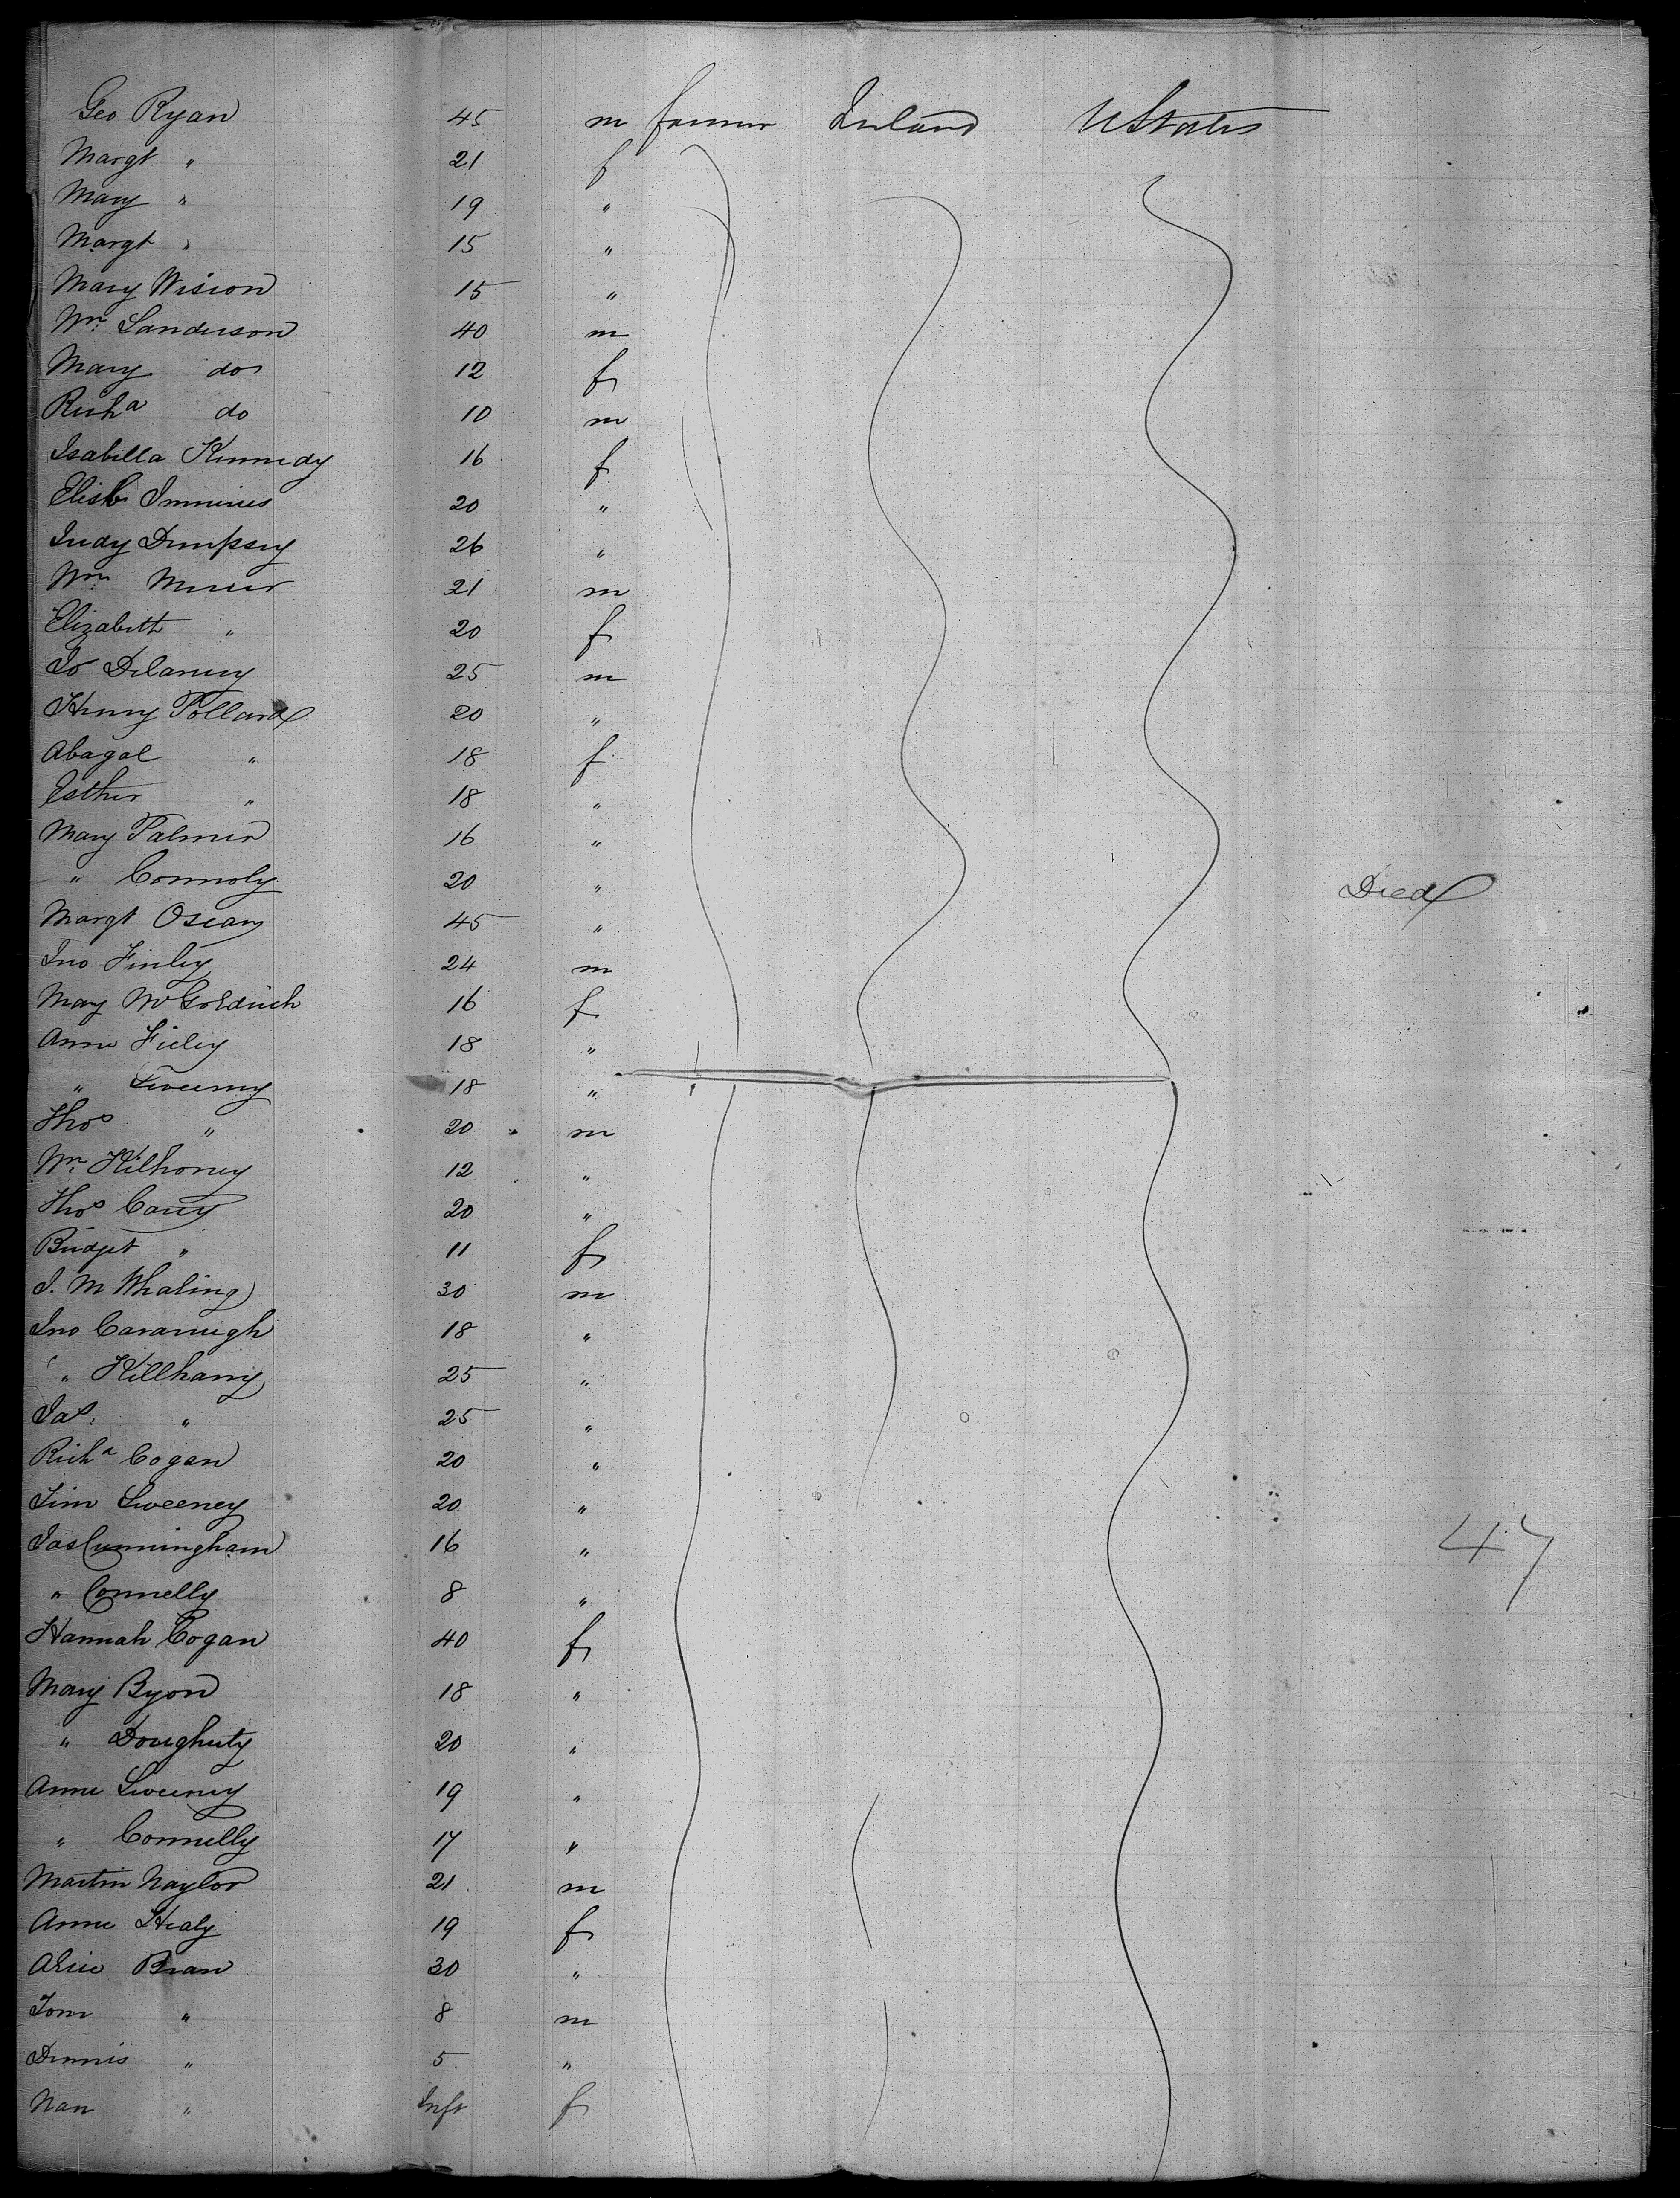 Geo Ryan 45 m farmer Ireland UStates
Margt " 21 f
Mary " 19 "
Margt " 15 "
Mary Wision 15 "
Wm Sanderson 40 m
Mary do 12 f
Richd do 10 m
Isabella Kennedy 16 f
Elisb 20 "
Judy Dempsey 26 "
Wm 21 m
Elizabeth " 20 f
Jo Delaney 25 m
Henry Pollard 20 "
Abagal " 18 f
Esther " 18 "
Mary Palmer 16 "
" Connoly 20 " Died
Margt 45 "
Jno Finley 24 m
Mary McGoldrich 16 f
Anne 18 "
" Sweeney 18 "
Thos " 20 m
Wm Kilhoney 12 "
Thos Carey 20 "
Bridget " 11 f
J. M Whaling 30 m
Jno Cavanugh 18 "
" Killhany 25 "
Jas. " 25 "
Richd Cogan 20 "
Tim Sweeney 20 "
Jas Cunningham 16 "
" Connelly 8 "
47
Hannah Cogan 40 f
Mary Byon 18 "
" Doughuty 20 "
Anne Sweeney 19 "
" Connelly 17 "
Martin Naylor 21 m
Anne Healy 19 f
Alice Bran 30 "
Tom " 8 m
Dennis " 5 "
Nan " Inft f